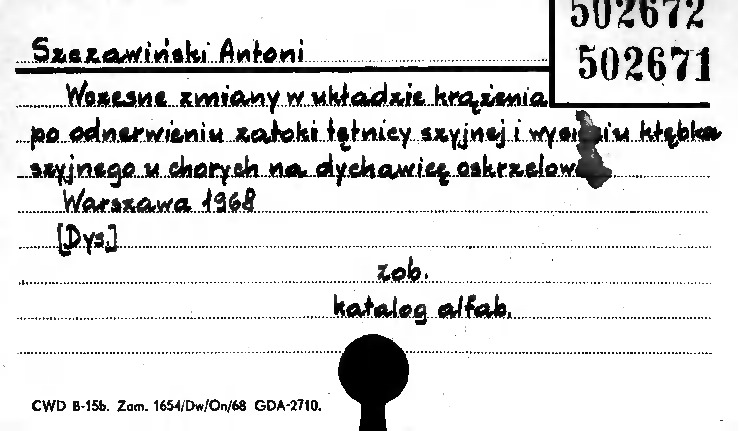 502672
502671
Szczawiński Antoni
Wczesne zmiany w układzie krążenia
po odnerwieniu zatoki tętnicy szyjnej i kłębka
szyjnego u chorych na dychawicę
Warszawa 1968
[Dys.]
zob.
katalog alfab.
CWD B-15b. Zam. 1654/Dw/On/68 GDA-2710.